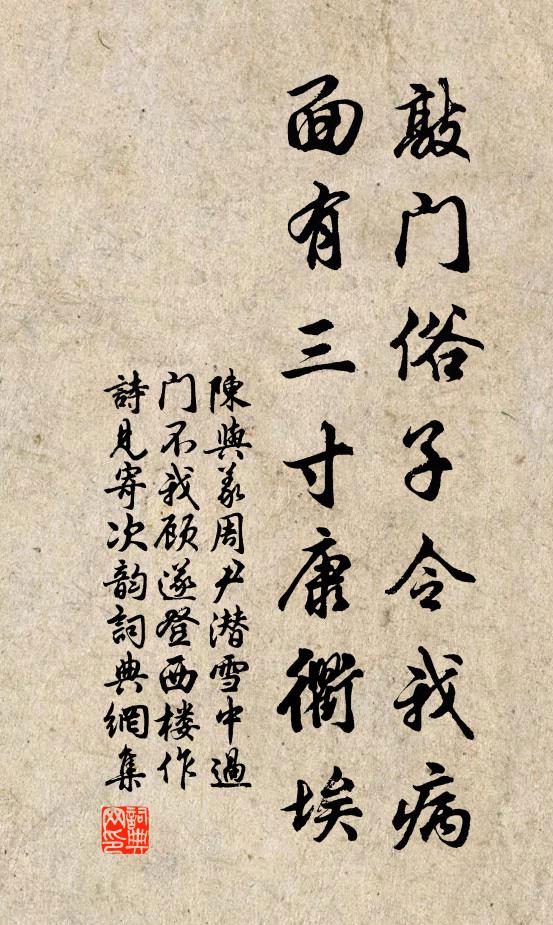 敲门俗子令我病
面有三寸康衢埃
陳與義周尹潜雪中過
门不我顾遂登西楼作
詩見寄次韵詞典網集
詞典网印